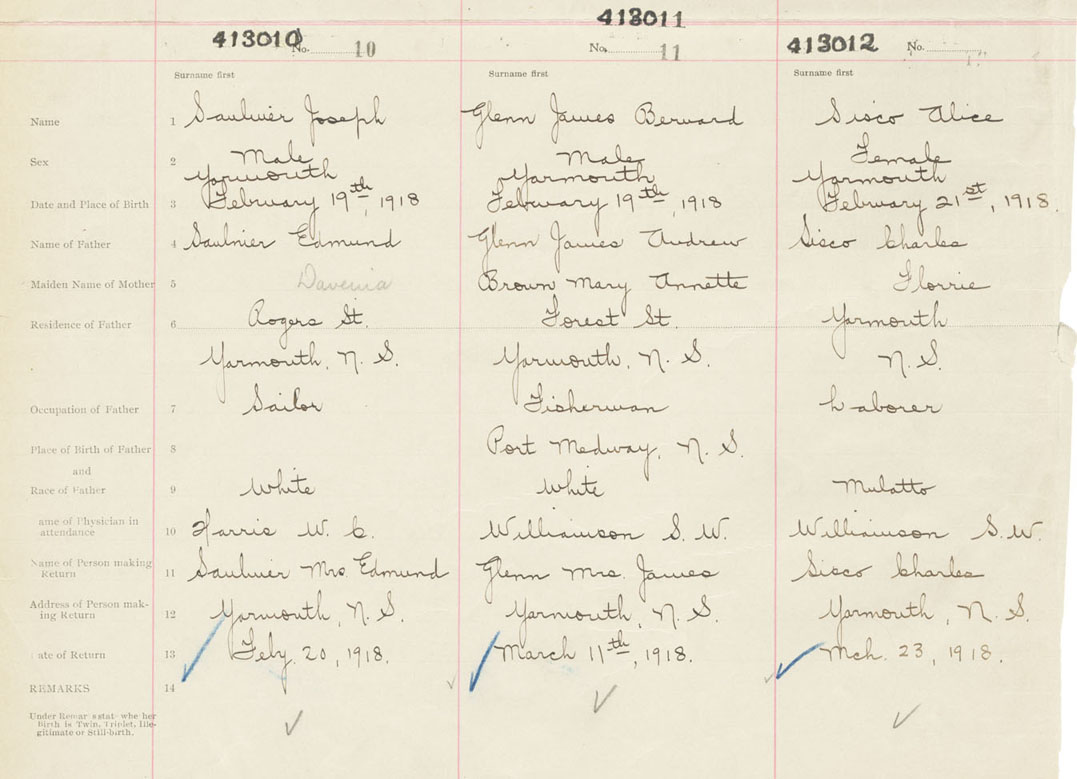 413010 No. 10 413011 No. 11 413012 No.
Surname first Surname first Surname first
Name 1 Saulnier Joseph Glenn James Bernard Sisco Alice
Sex 2 Male Male Female
Yarmouth Yarmouth Yarmouth
Date and Place of Birth 3 February 19th, 1918 February 19th, 1918 February 21st, 1918.
Name of Father 4 Saulnier Edmund Glenn James Andrew Sisco Charles
Maiden Name of Mother 5 Davenia Brown Mary Annette Florrie
Residence of Father 6 Rogers St. Forest St. Yarmouth
Yarmouth, N. S. Yarmouth, N. S. N. S.
Occupation of Father 7 Sailor Fisherman Laborer
Place of Birth of Father 8 Port Medway, N. S.
and
Race of Father 9 White White Mulatto
ame of Physician in
attendance 10 Harris W. C. Williamson S. W. Williamson S. W.
Name of Person making
Return 11 Saulnier Mrs. Edmund Glenn Mrs. James Sisco Charles
Address of Person mak-
ing Return 12 Yarmouth, N. S. Yarmouth, N. S. Yarmouth, N. S.
ate of Return 13 Feby. 20, 1918. March 11th, 1918. Mch. 23, 1918.
REMARKS 14
Under Remar s stat whe her
Birth is Twin, Triplet, Ille-
gitimate or Still-birth.